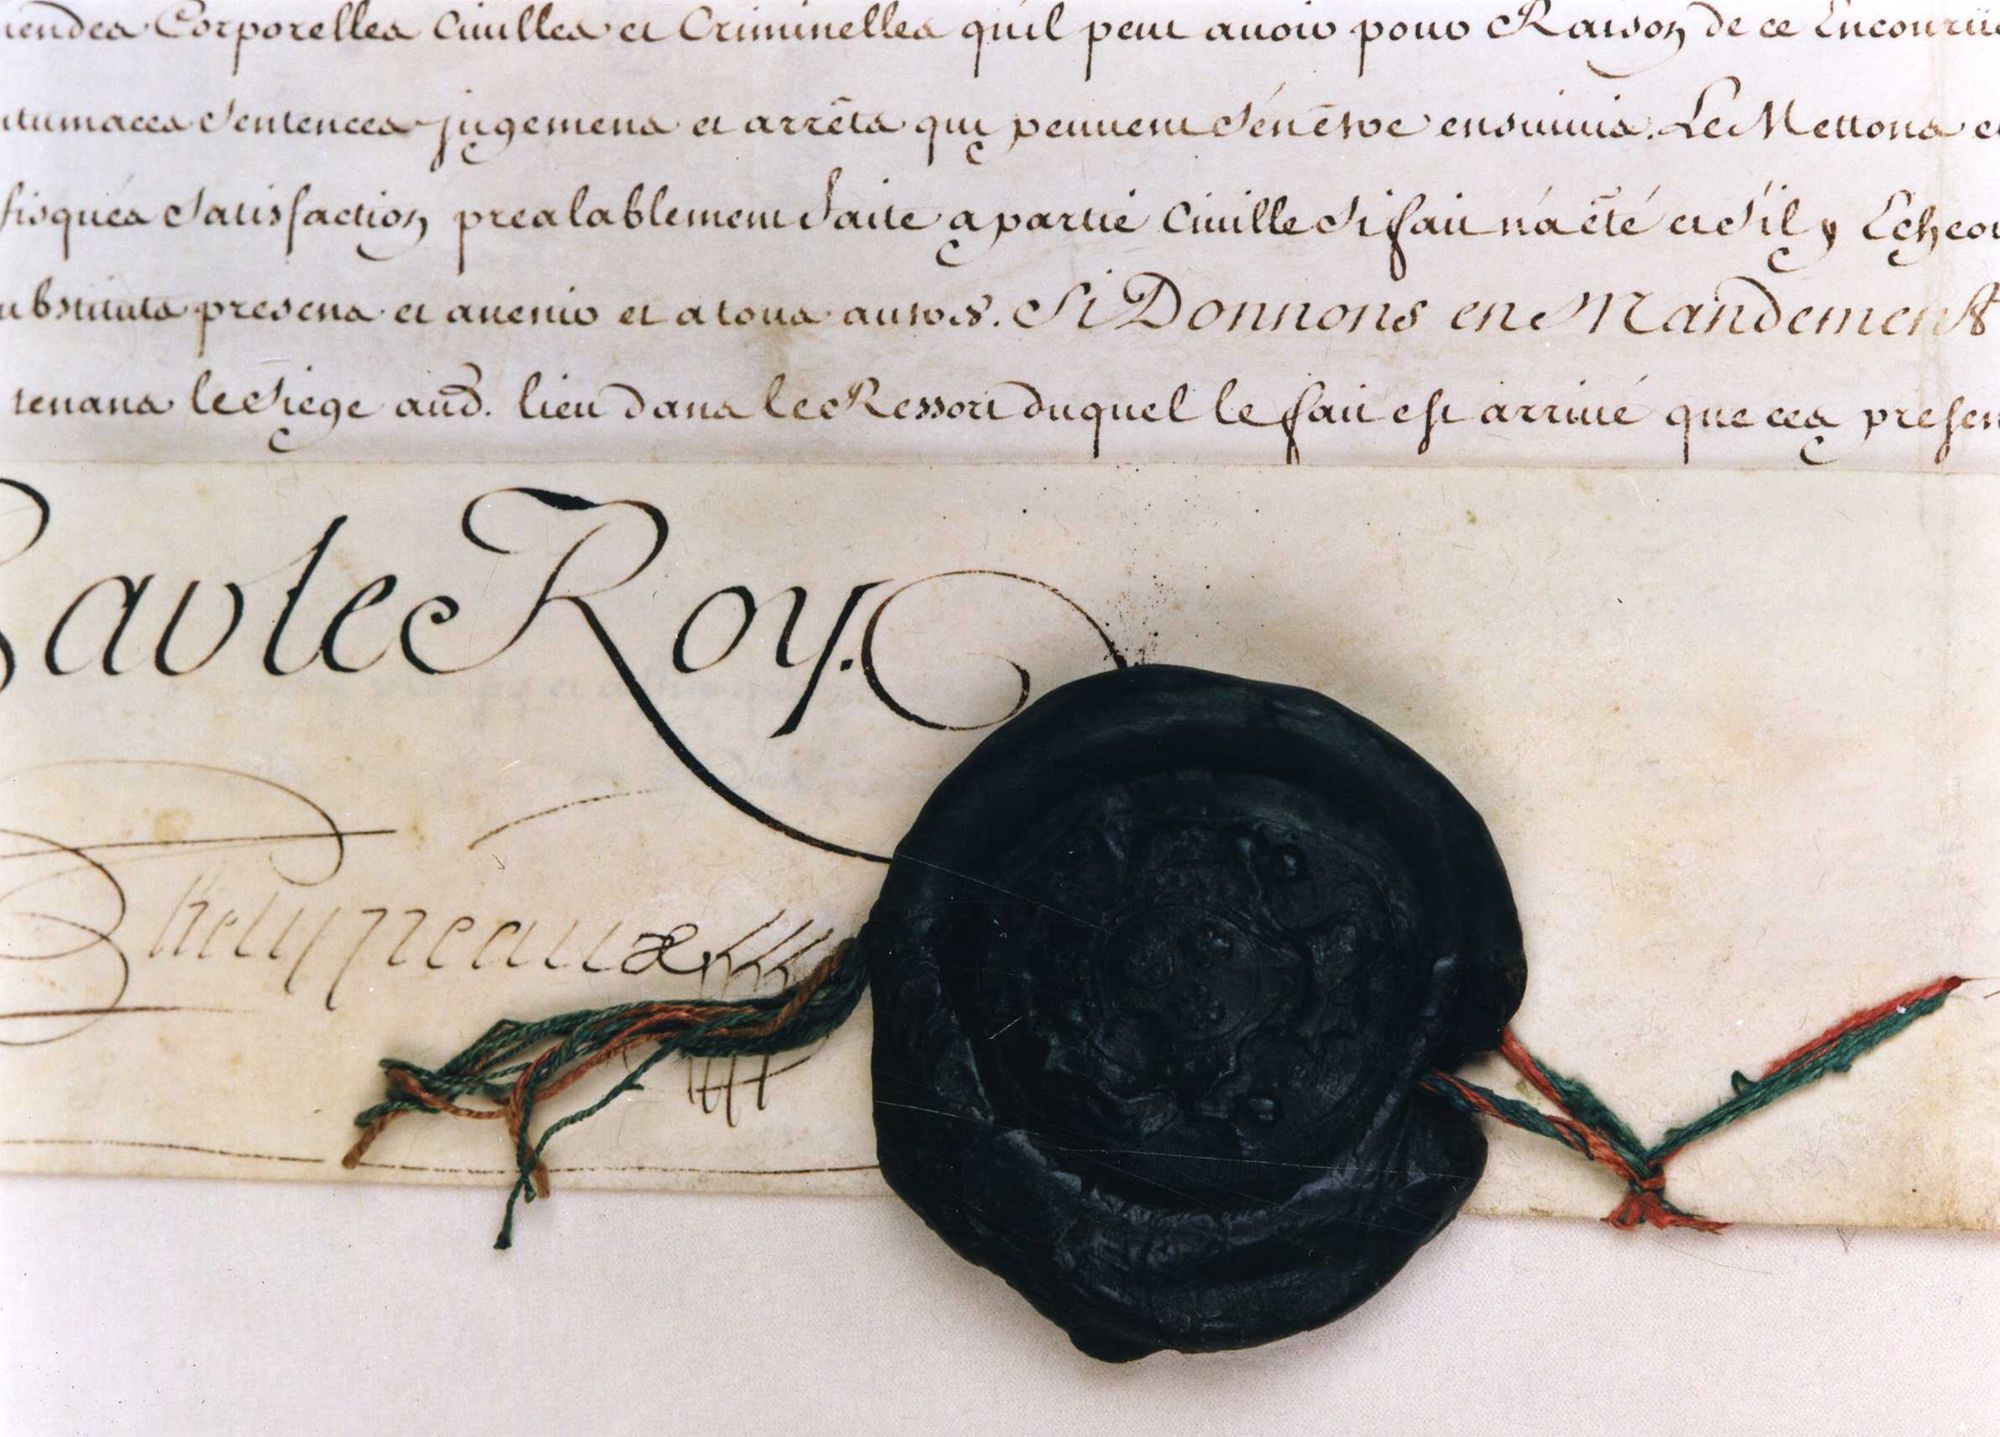 mendes Corporelles Civilles et Criminelles qu'il peut avoir pour Raison de ce Encouruë
ntumaces Sentences jugemens et arrêts qui peuvent s'en être ensuivis. Le Mettons et
fisqués Satisfaction prealablement faite a partie Civille Si fait n'a été et S'il y Echeoi
ubstituts presens et avenir et a tous autres. Si Donnons en Mandement
tenans le Siege aud. lieu dans le Ressort duquel le fait est arrivé que ces presen
Par le Roy.
Phelypeaux